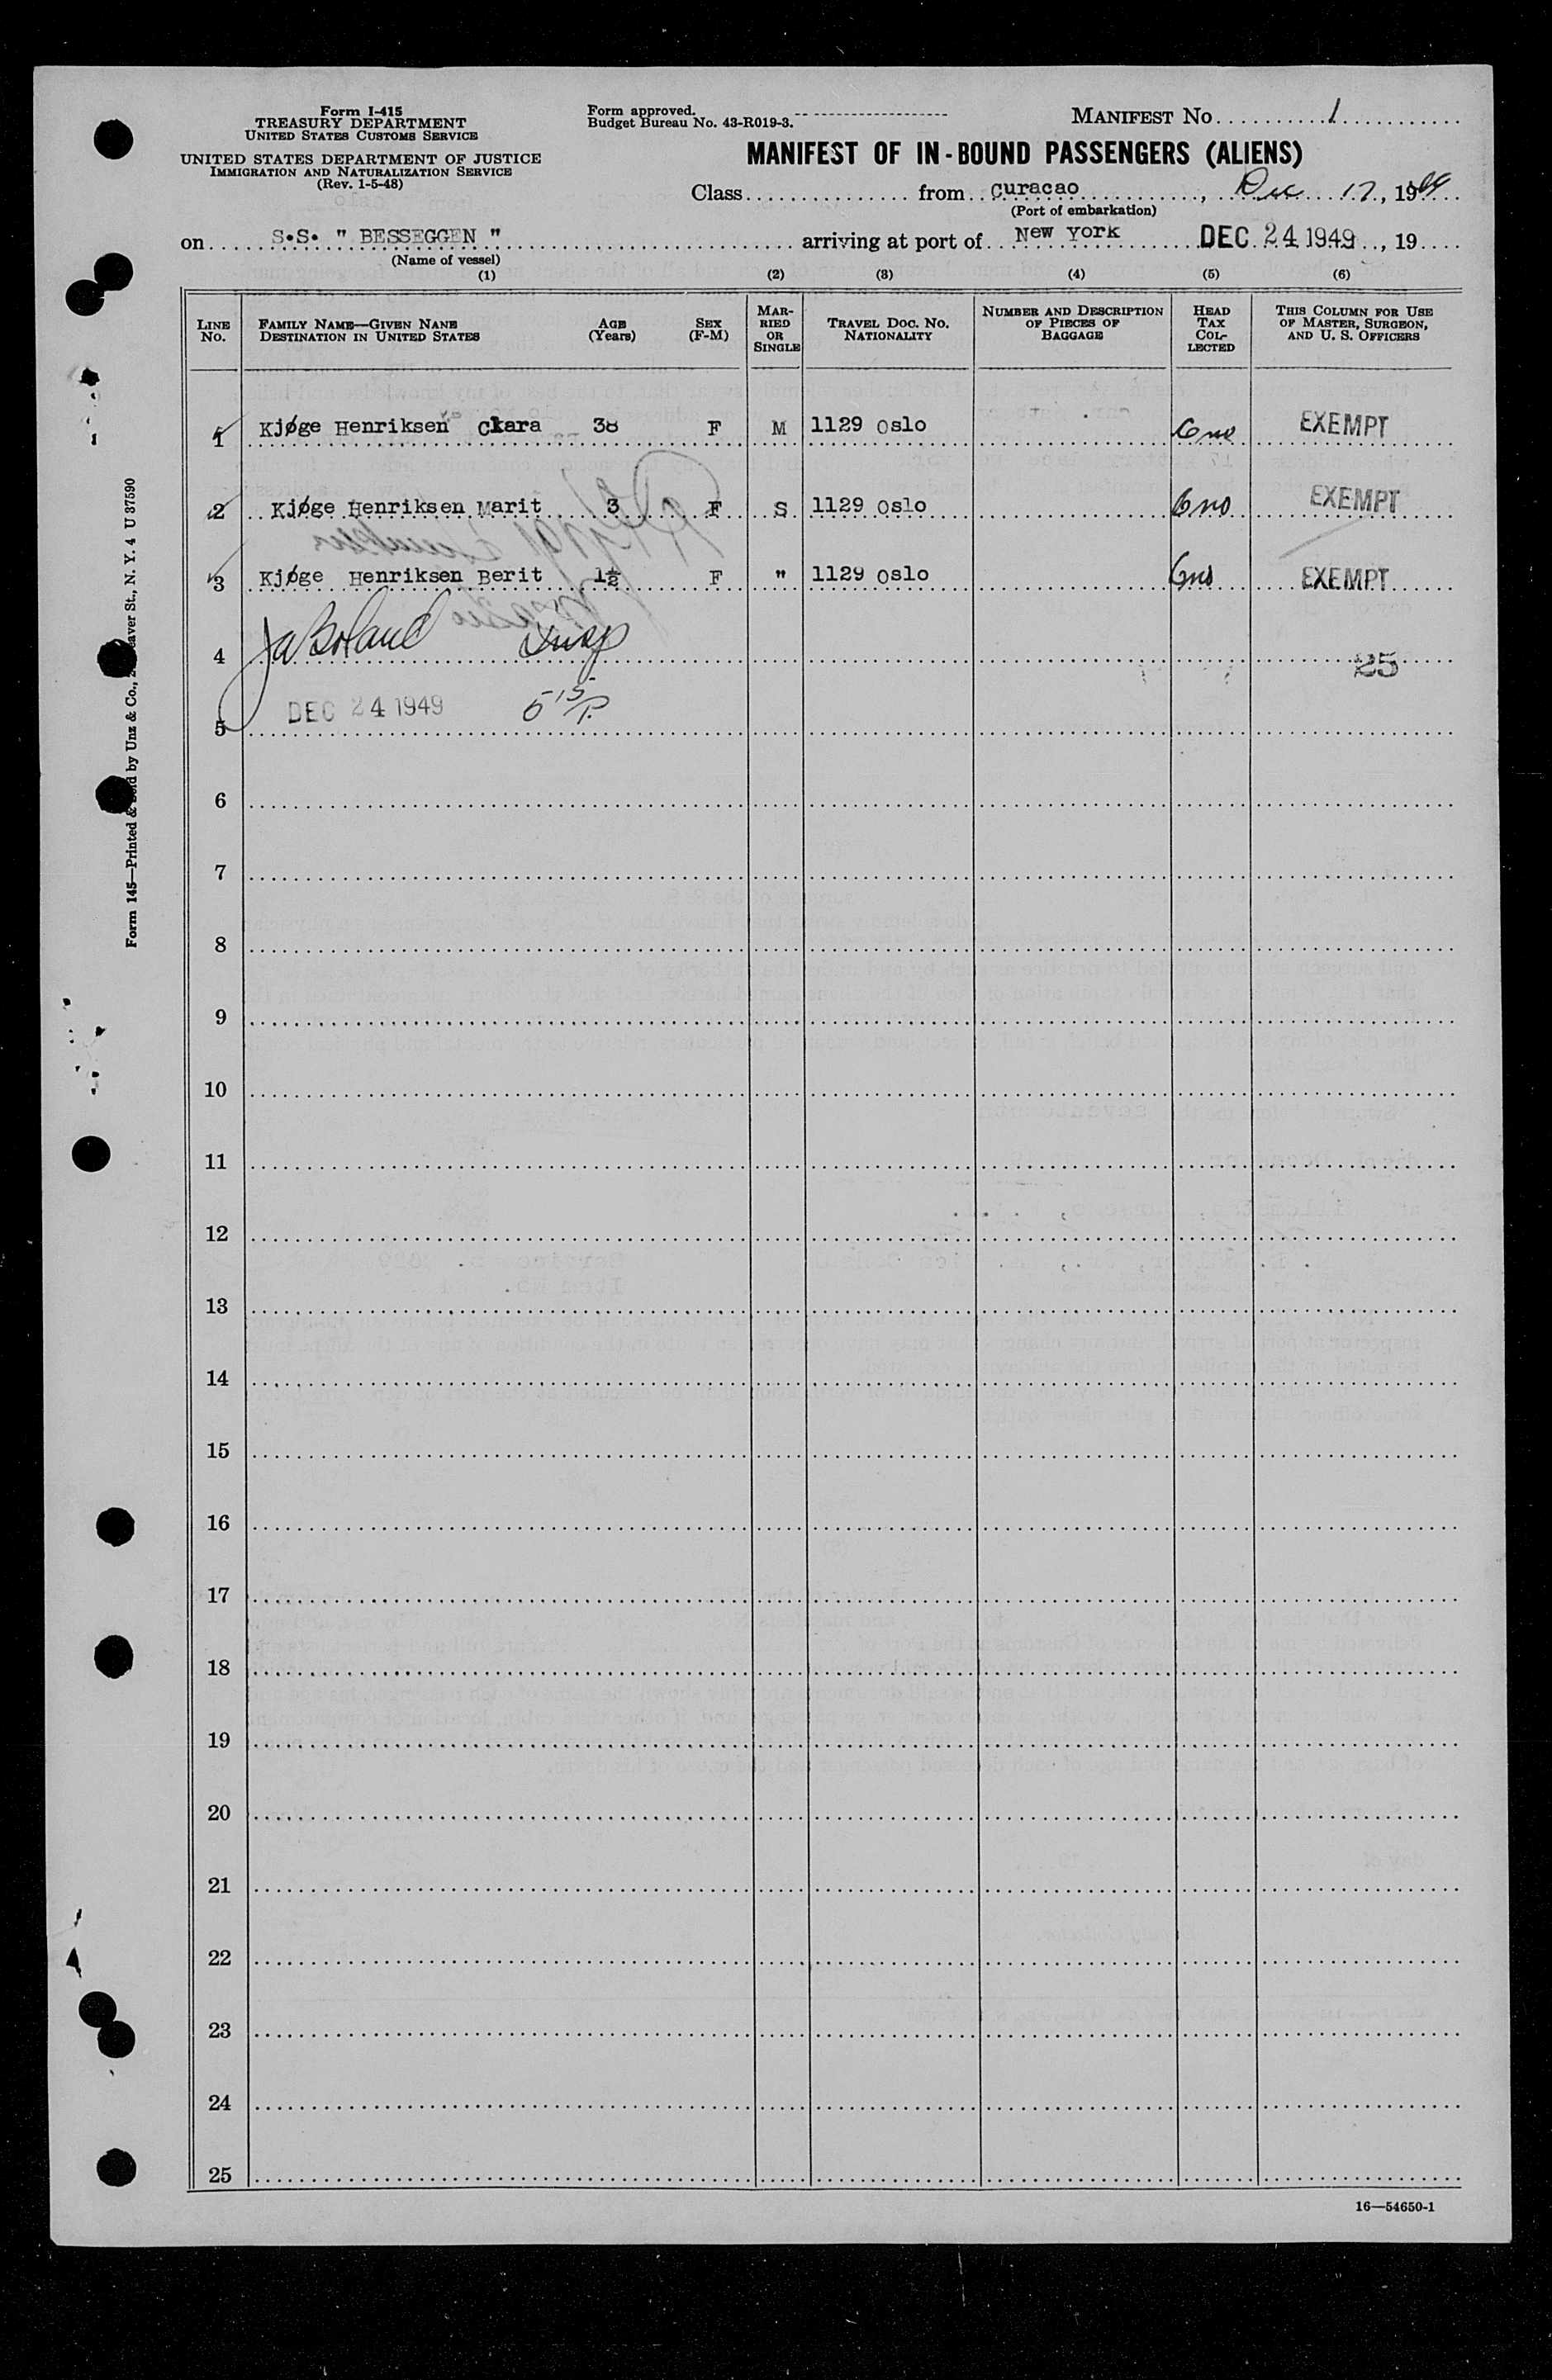 Form I-415
TREASURY DEPARTMENT
UNITED STATES CUSTOMS SERVICE
UNITED STATES DEPARTMENT OF JUSTICE
IMMIGRATION AND NATURALIZATION SERVICE
(Rev. 1-5-48)
Form approved.
Budget Bureau No. 43-R019-3.
MANIFEST No. 1
MANIFEST OF IN-BOUND PASSENGERS (ALIENS)
Class from Curacao, Dec 17, 19
(Port of embarkation)
on S.S. " BESSEGGEN " arriving at port of New York DEC 24 1949, 19
(Name of vessel)
(1) (2) (3) (4) (5) (6)
LINE No. FAMILY NAME—GIVEN NANE DESTINATION IN UNITED STATES AGE (Years) SEX (F-M) MARRIED OR SINGLE TRAVEL DOC. NO. NATIONALITY NUMBER AND DESCRIPTION OF PIECES OF BAGGAGE HEAD TAX COLLECTED THIS COLUMN FOR USE OF MASTER, SURGEON, AND U. S. OFFICERS
1 Kjøge Henriksen Clara 38 F M 1129 Oslo 6 mo EXEMPT
2 Kjøge Henriksen Marit 3 F S 1129 Oslo 6 mo EXEMPT
3 Kjøge Henriksen Berit 1½ F " 1129 Oslo 6 mo EXEMPT
4 Insp 25
5 DEC 24 1949 5 15 P.
6
7
8
9
10
11
12
13
14
15
16
17
18
19
20
21
22
23
24
25
16—54650-1
Form 145—Printed & Sold by Unz & Co., Beaver St., N. Y. 4 U 37590